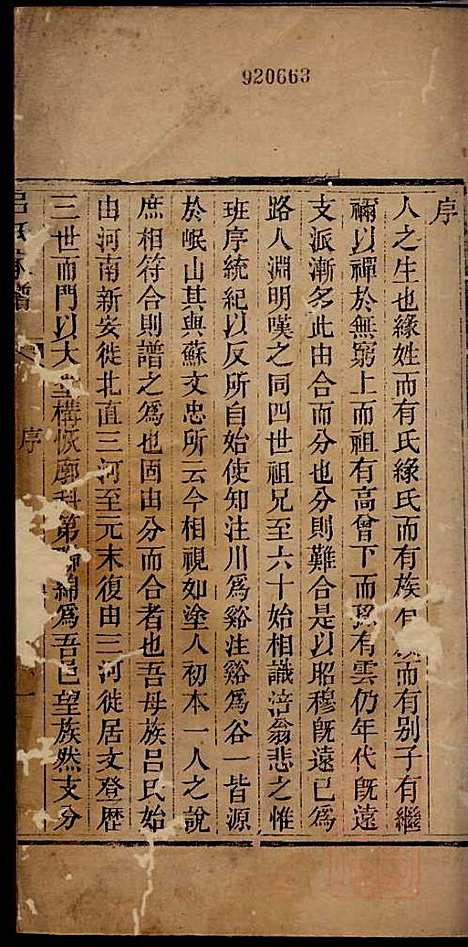 920663
序
人之生也緣姓而有氏緣氏而有族有而有别子有繼
禰以禪於無窮上而祖有高曾下而孫有雲仍年代既遠
支派漸多此由合而分也分則難合是以昭穆既遠已爲
路人淵明嘆之同四世祖兄至六十始相識涪翁悲之惟
班序統紀以反所自始使知注川爲谿注谿爲谷一皆源
於岷山其與蘇文忠所云今相視如塗人初本一人之說
庶相符合則譜之爲也固由分而合者也吾母族呂氏始
由河南新安徙北直三河至元末復由三河徙居文登歷
三世而門以大堂構恢廓科第綿爲吾邑望族然支分
呂氏家譜
序
一